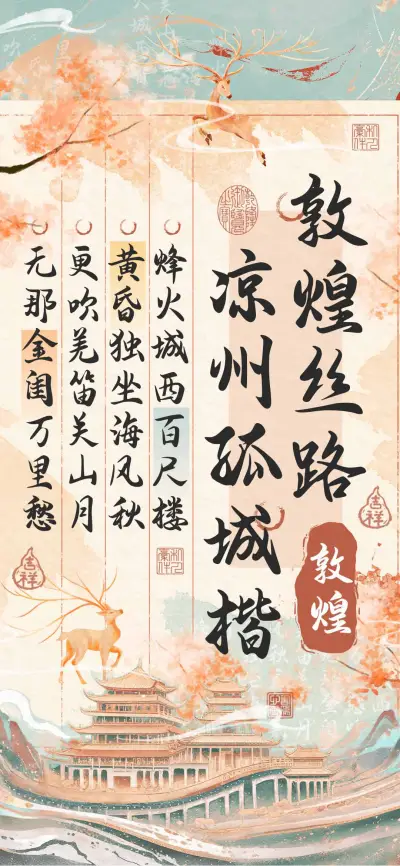 敦煌丝路
凉州孤城楷
敦煌
烽火城西百尺楼
黄昏独坐海风秋
更吹羌笛关山月
无那金闺万里愁
吉祥
吉祥